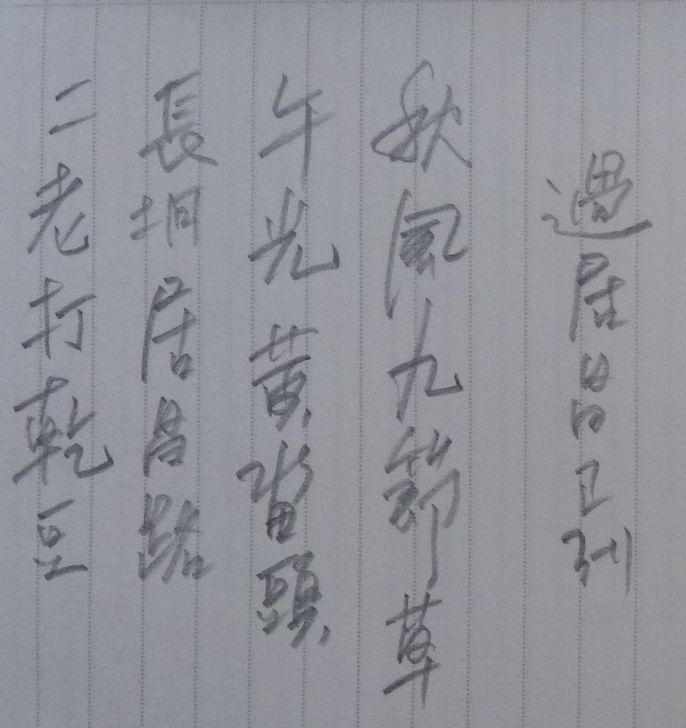 過居昌고제
秋風九節草
午光黃畓頭
長坰居昌路
二老打乾豆